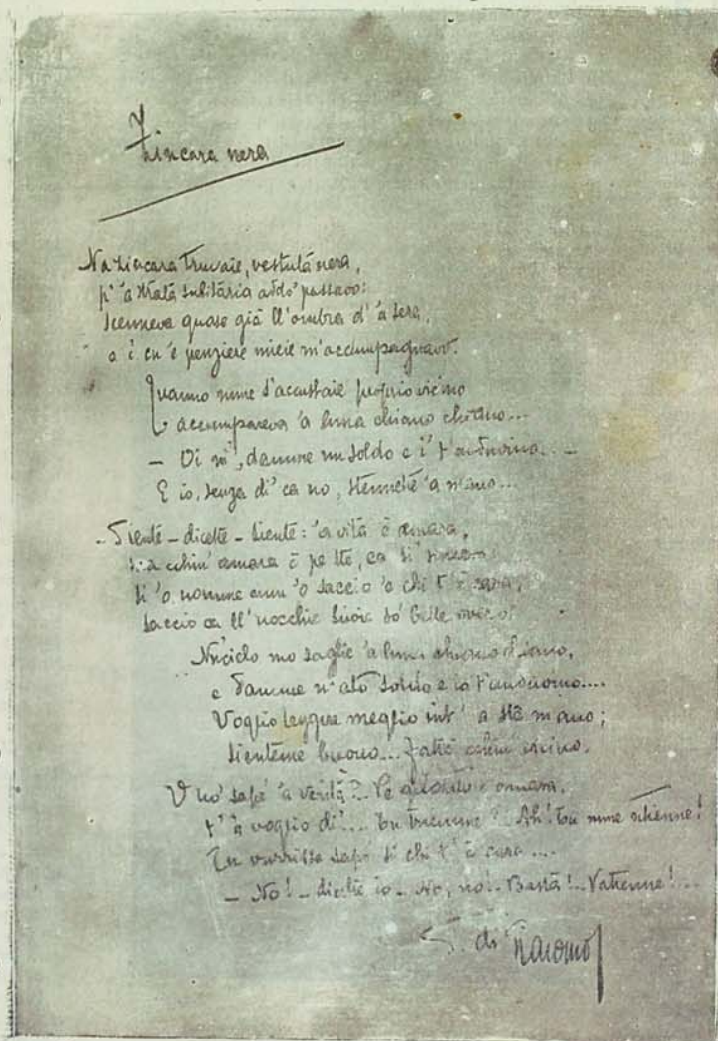 Zincara nera
Na zincara truvaie, vestuta nera,
p' 'a strata sulitaria addó passavo:
scenneva quase già ll'ombra d' 'a sera,
e i' cu 'e penziere mieie m'accumpagnavo.
Quanno mme s'accustaie proprio vicino
accumpareva 'a luna chiano chiano...
— Oi ni', damme nu soldo e i' t'anduvino...—
E io, senza di' ca no, stennette 'a mano...
— Siente — dicette — siente: 'a vita è amara,
e cchiù amara è pe tte, ca si' sincero
si 'o nomme nun 'o saccio 'e chi t'è cara,
saccio ca ll'uocchie suoie so' belle overo!
'Ncielo mo saglie 'a luna chiano chiano,
e damme n'ato soldo e io t'anduvino....
Voglio leggere meglio int' a sta mano;
sienteme buono... fatte cchiù vicino.
Vuó sapé 'a verità?.. Pe quanto è amara,
t' 'a voglio di'... Tu triemme? Ah! tu mme strienne!
Tu vurrisse sapé si chi t'è cara....
— No! — dicette io — No, no!.. Basta!.. Vattenne!...
S. di Giacomo